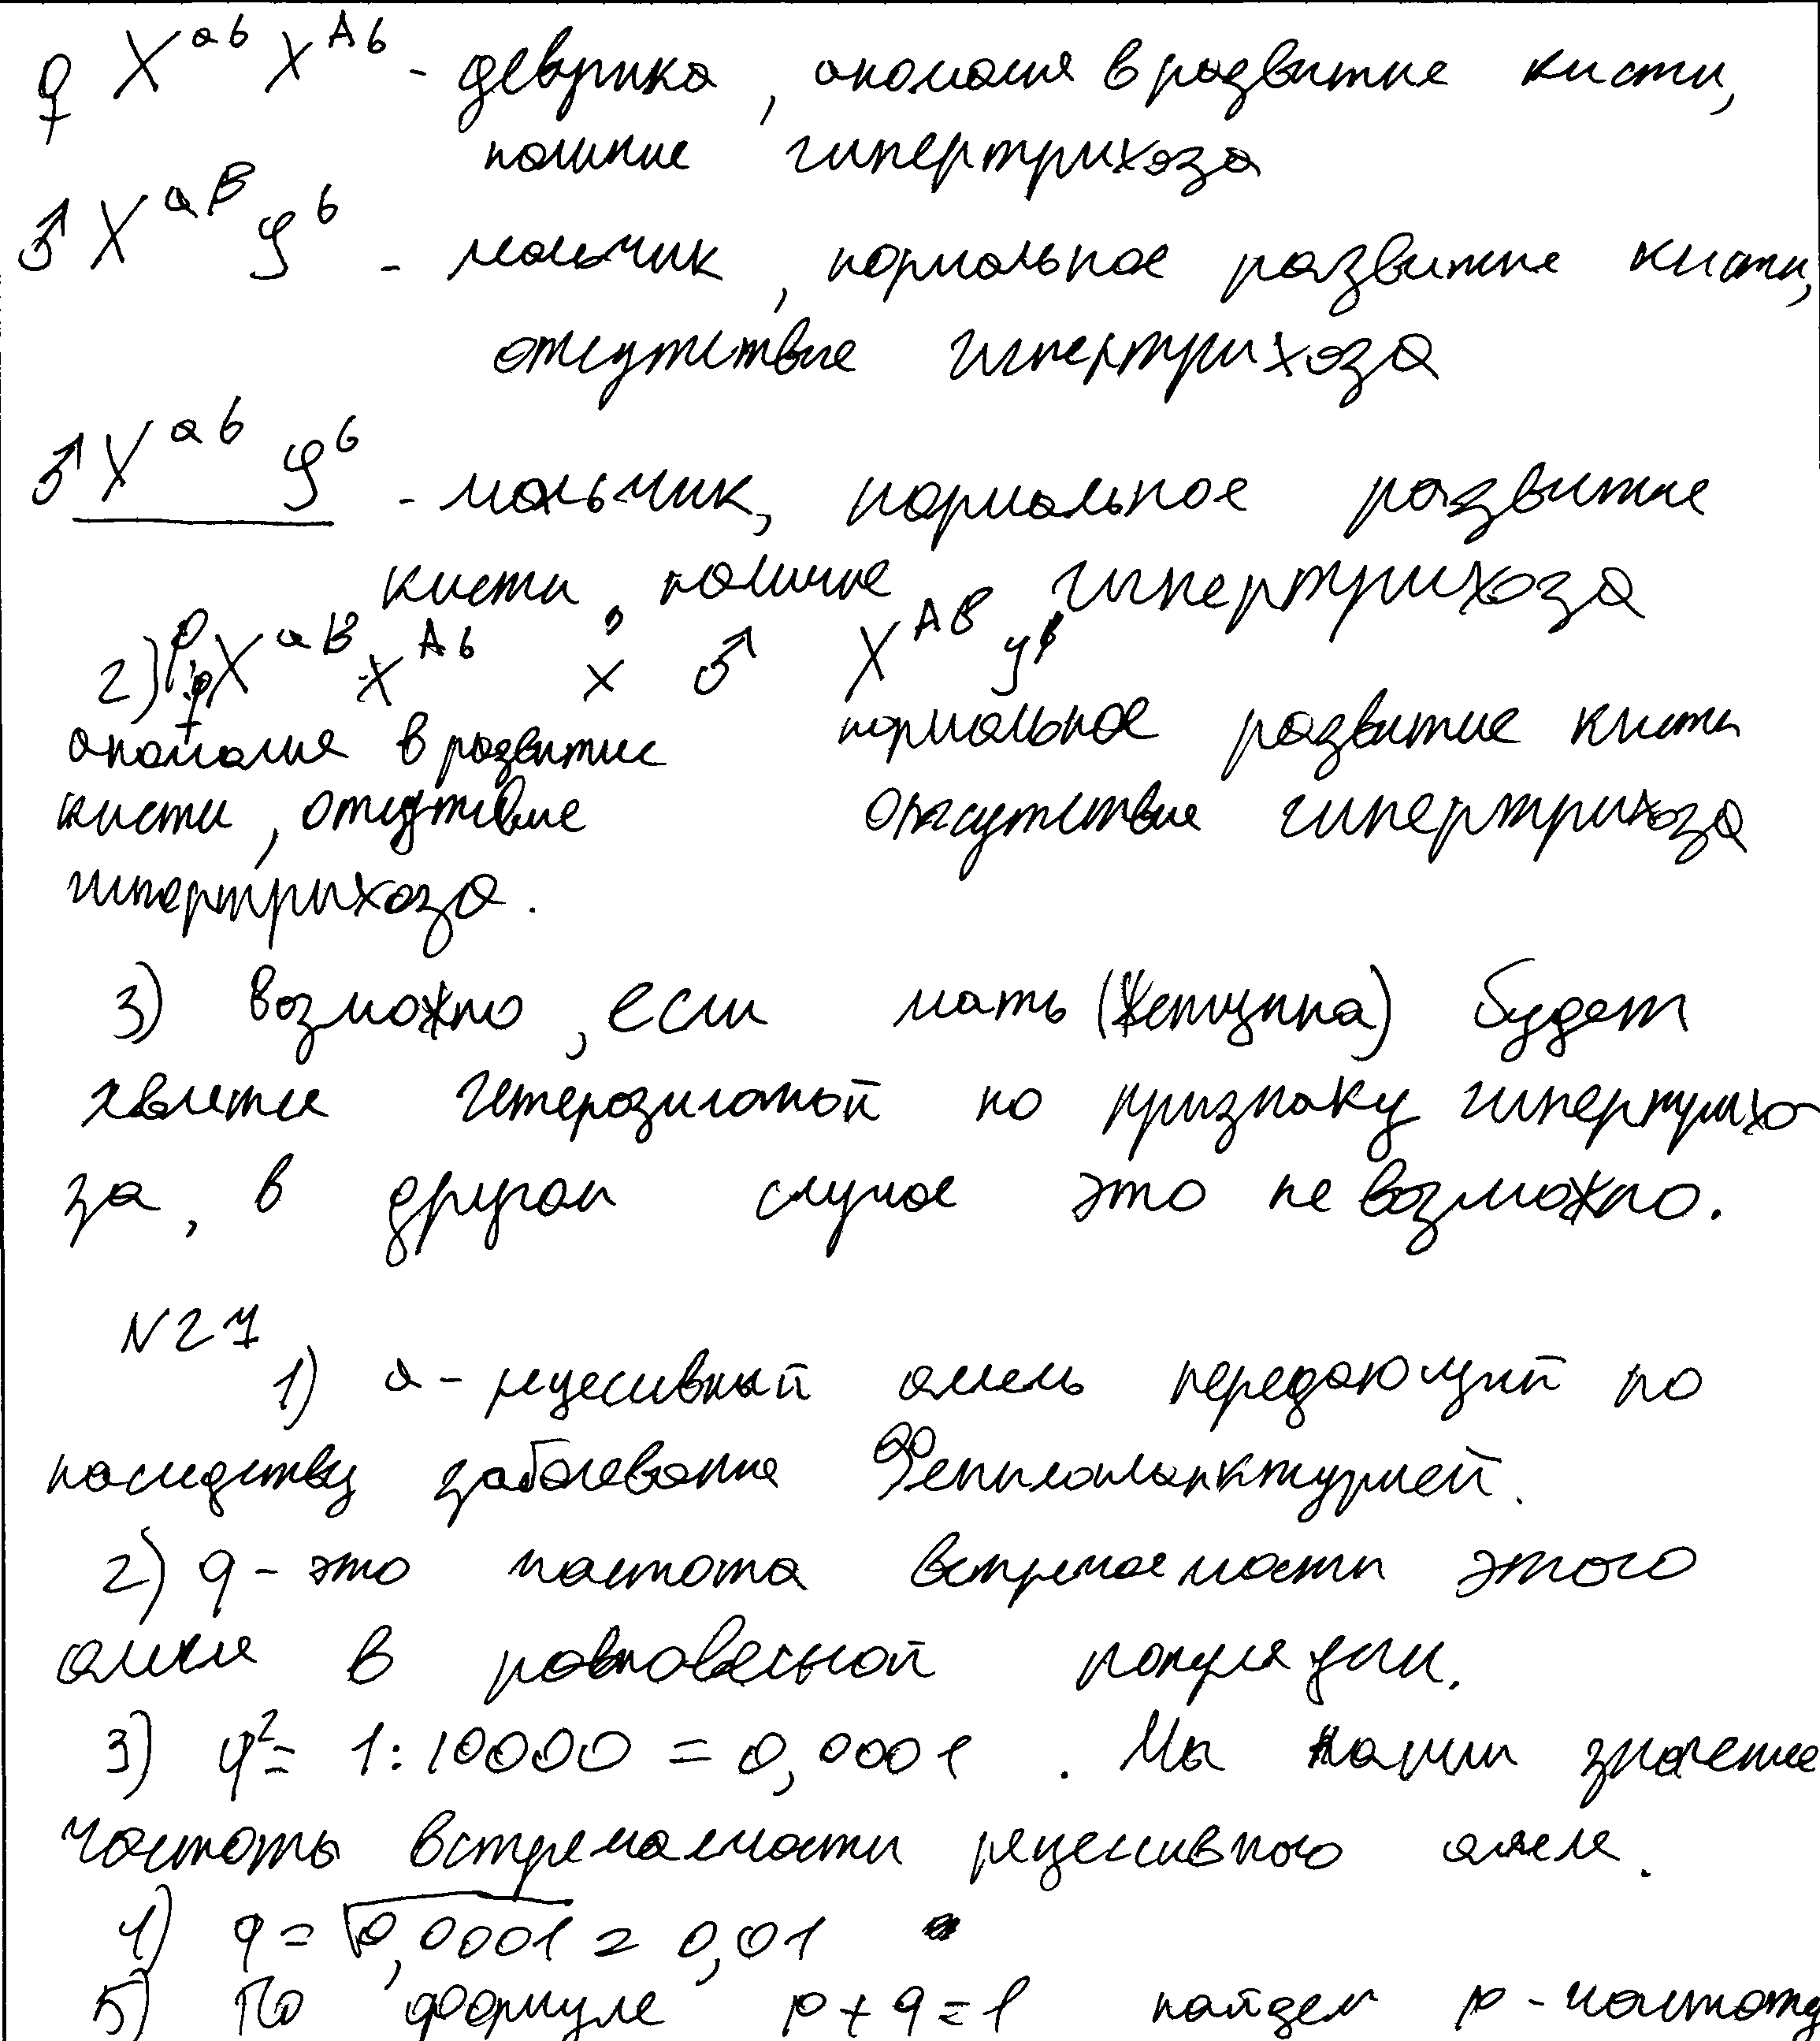 ♀ X^аb X^Аb - девочка, аномалия в развитие кисти,
наличие гипертрихоза
♂ X^аB Y^b - мальчик, нормальное развитие кисти,
отсутствие гипертрихоза
♂ X^аb Y^b - мальчик, нормальное развитие
кисти, наличие гипертрихоза
2) P: ♀ X^аB X^Аb × ♂ X^АB Y^b
аномалия в развитие нормальное развитие кисти
кисти, отсутствие отсутствие гипертрихоза
гипертрихоза.
3) возможно, если мать (женщина) будет
являтся гетерозиготой по признаку гипертрихо
за, в другом случае это не возможно.
N27
1) а - рецесивный аллель передающий по
наследству заболевание
2) q - это частота встречаемости этого
аллеля в равновесной популяции.
3) q² = 1:10000 = 0,0001. Мы нашли значение
частоты встречаемости рецессивного аллеля.
4) q = √0,0001 = 0,01
5) По формуле p + q = 1 найдем p - частоту